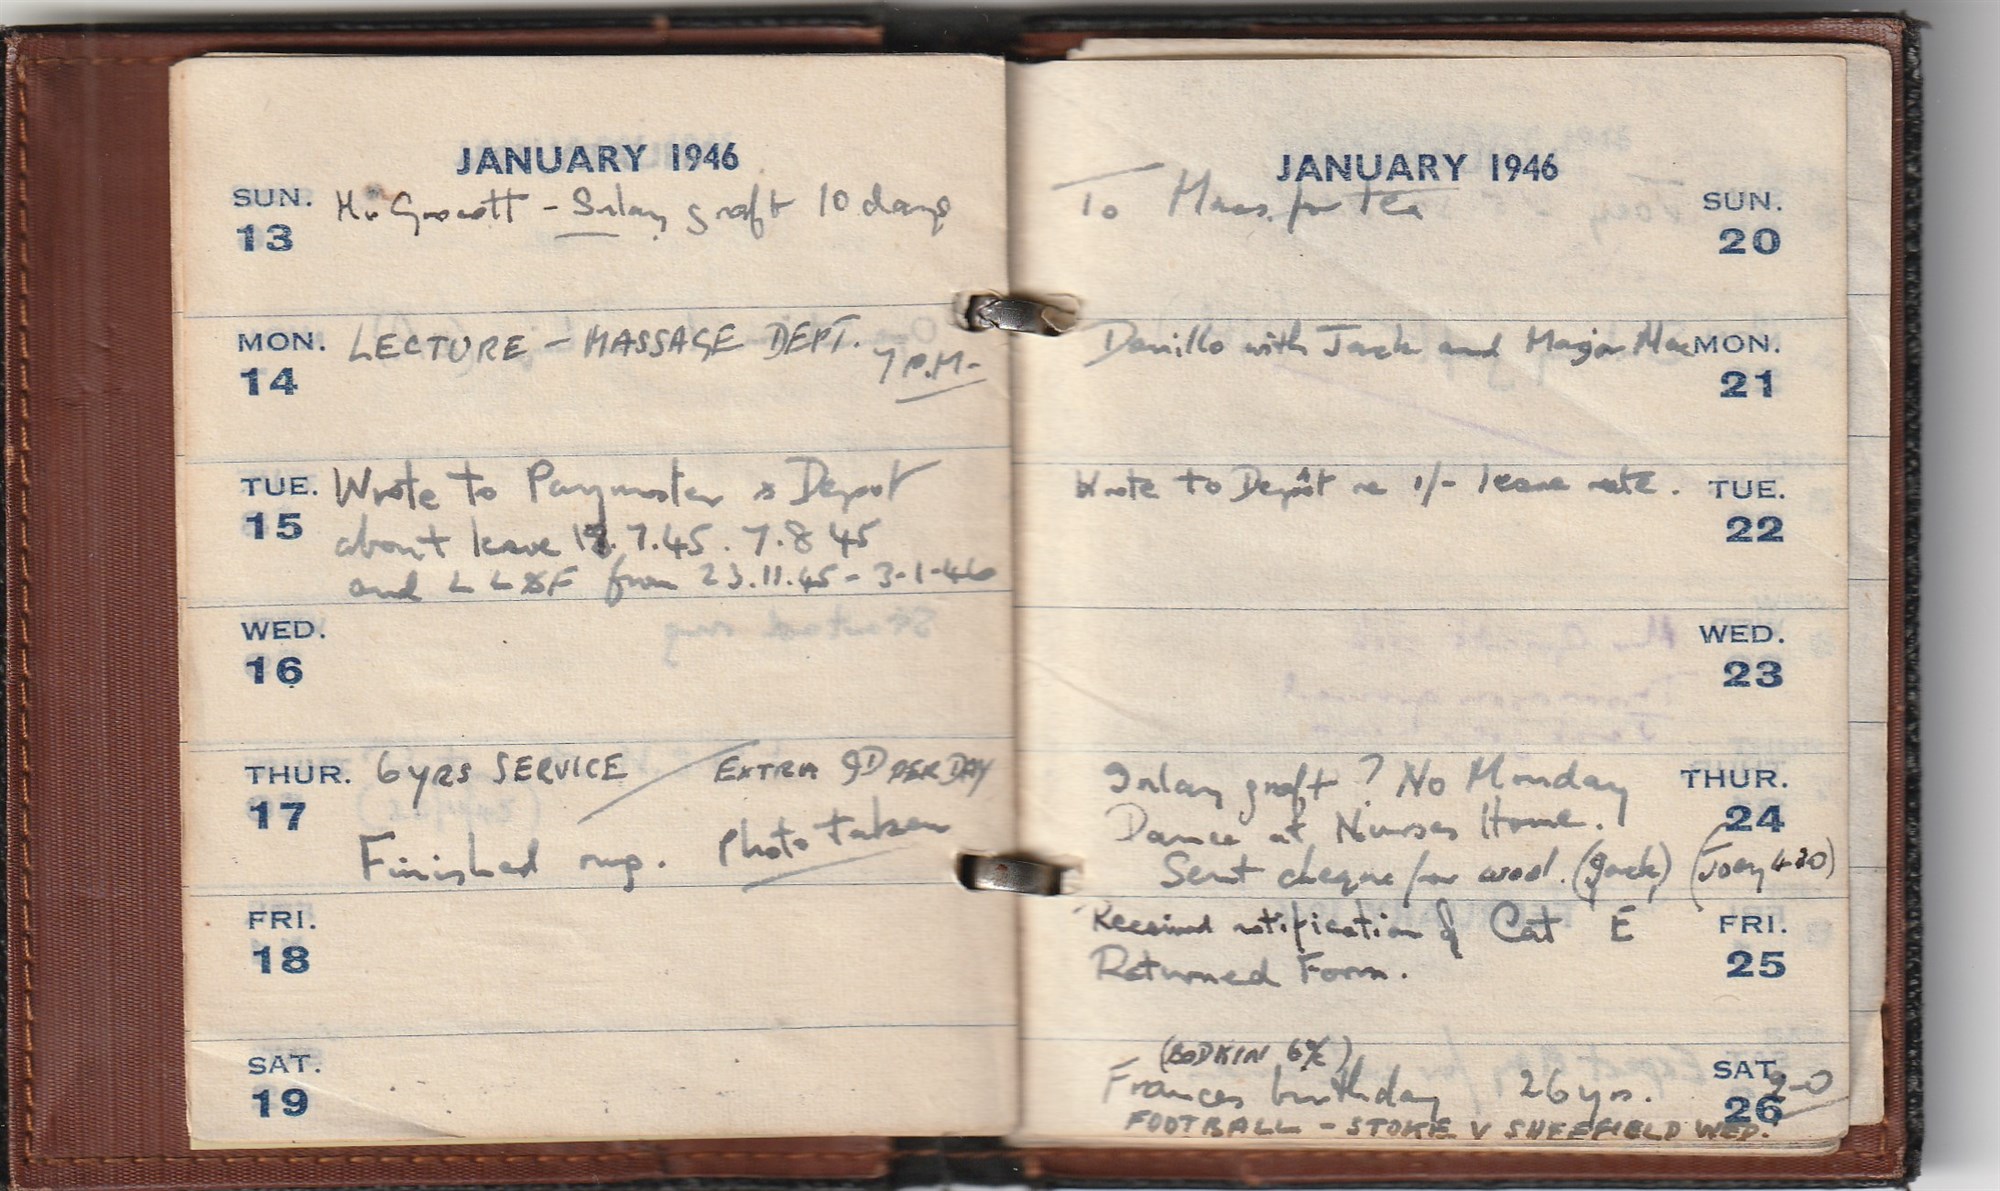 JANUARY 1946
SUN. 13
Mr Grocott - Inlay graft 10 days
MON. 14
LECTURE - MASSAGE DEPT. 7 P.M.
TUE. 15
Wrote to Paymaster & Depot
about leave 18.7.45. 7.8 45
and L L & F from 23.11.45 - 3-1-46
WED. 16
THUR. 17
6 YRS SERVICE / EXTRA 9D PER DAY
Finished rug. Photo taken
FRI. 18
SAT. 19
JANUARY 1946
SUN. 20
To Macs. for tea
MON. 21
Danillo with Jack and Major Mac
TUE. 22
Wrote to Depôt re 1/- leave rate.
WED. 23
THUR. 24
Inlay graft? No Monday
Dance at Nurses Home.
Sent cheque for wool. (Jack) (Joey 4.30)
FRI. 25
Received notification of Cat E
Returned Form.
SAT. 26
(BODKIN 6%)
Frances birthday 26 yrs. 2-0
FOOTBALL - STOKE V SHEFFIELD WED.